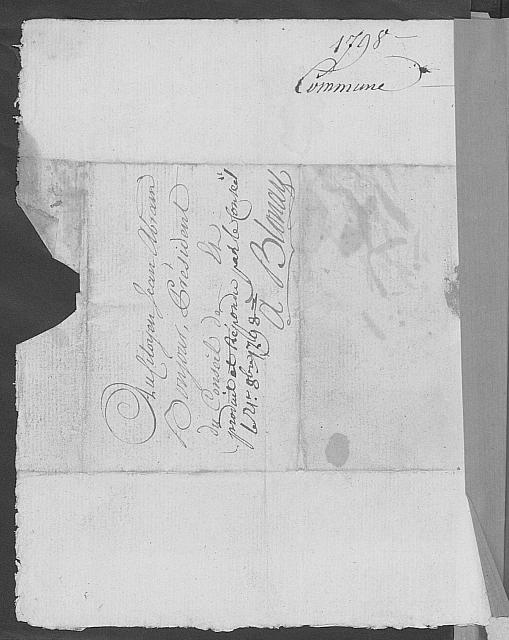 1798
Commune
Au Citoyen Jean Abram
Bonjour, Président
du Conseil de
produit et Répondu par le Conseil
le 4e. 8bre 1798
A Blonay